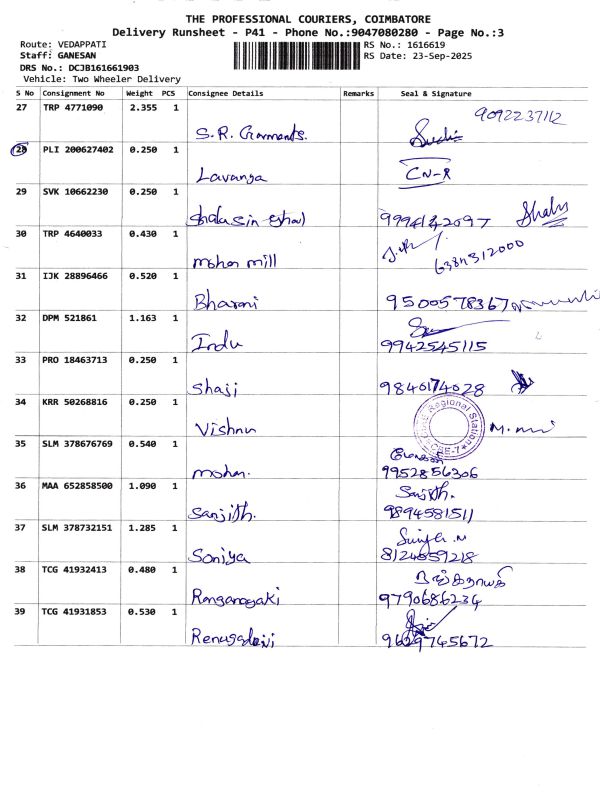 THE PROFESSIONAL COURIERS, COIMBATORE
Delivery Runsheet - P41 - Phone No.:9047080280 - Page No.:3
Route: VEDAPPATI
RS No.: 1616619
Staff: GANESAN
RS Date: 23-Sep-2025
DRS No.: DCJB161661903
Vehicle: Two Wheeler Delivery
S No Consignment No Weight PCS Consignee Details Remarks Seal & Signature
27 TRP 4771090 2.355 1
9092237112
S.R. Garments.
28 PLI 200627402 0.250 1
Lavanya CN-R
29 SVK 10662230 0.250 1
9994142097 Shaly
30 TRP 4640033 0.430 1
mohan mill 6384312000
31 IJK 28896466 0.520 1
Bharani 9500578367
32 DPM 521861 1.163 1
Indu 9942545115
33 PRO 18463713 0.250 1
Shaji 9840174028
34 KRR 50268816 0.250 1
Vishnu
Regional Station
CBE-7
35 SLM 378676769 0.540 1
mohan. 9952856306
36 MAA 652858500 1.090 1
Sanjith.
Sanjith. 9894581511
37 SLM 378732151 1.285 1
Soniya 8124659218
38 TCG 41932413 0.480 1
ரங்கநாயகி
Ranganayaki 9790686234
39 TCG 41931853 0.530 1
Renugadevi 9629745672